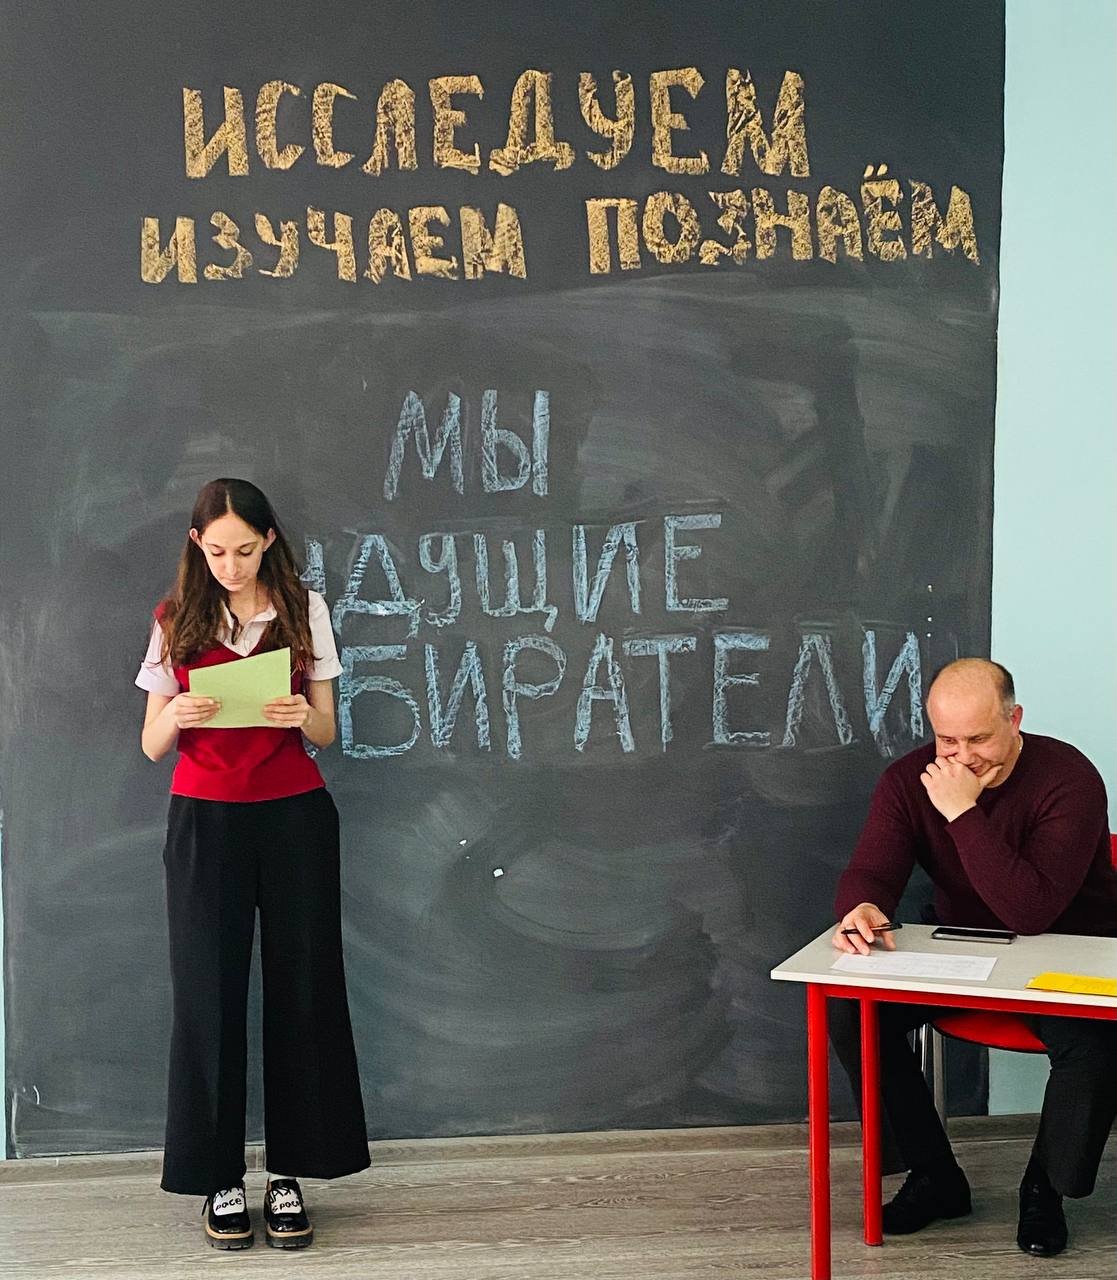 ИССЛЕДУЕМ
ИЗУЧАЕМ ПОЗНАЁМ
МЫ
ДУЩИЕ
БИРАТЕЛИ